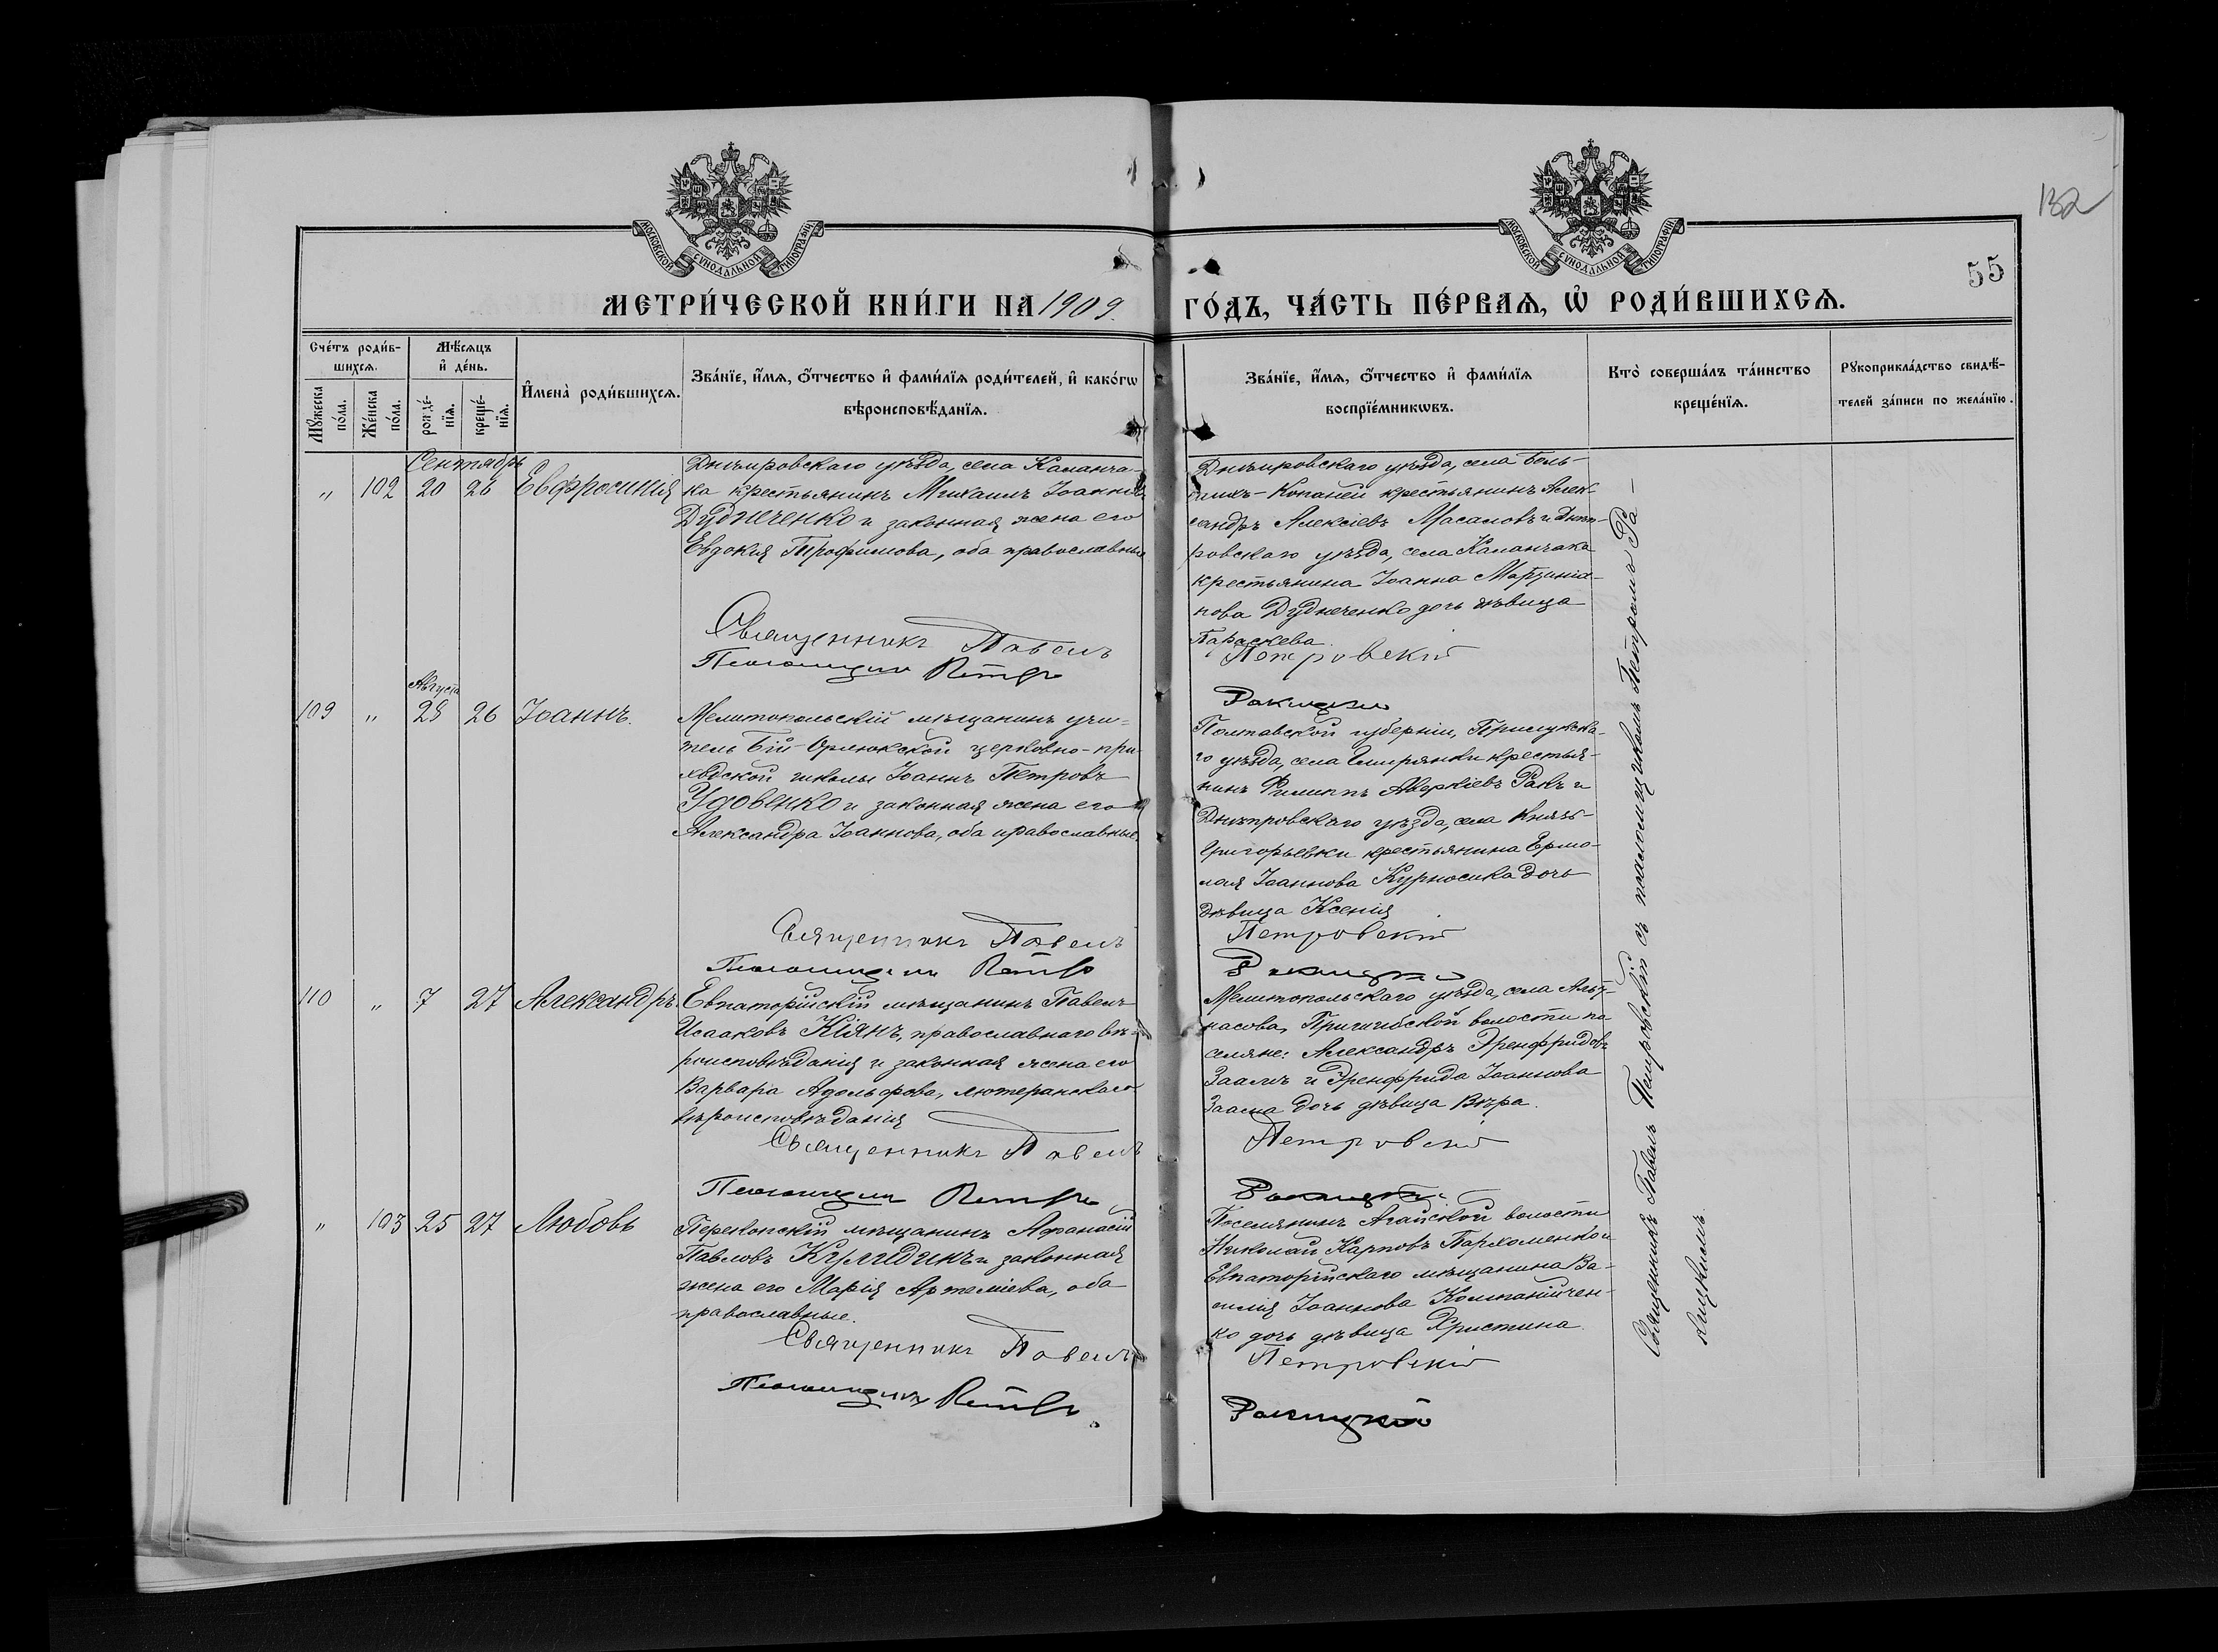 132
55
МОСКОВСКОЙ СѴНОДАЛЬНОЙ ТИПОГРАФІИ
МОСКОВСКОЙ СѴНОДАЛЬНОЙ ТИПОГРАФІИ
МЕТРИ́ЧЕСКОЙ КНИ́ГИ НА 1909 ГО́ДЪ, ЧА́СТЬ ПЕ́РВАѦ, Ѡ҆ РОДИ́ВШИХСѦ.
Сче́тъ роди́в-
шихсѧ.
Мꙋ́жеска по́ла.
Же́нска по́ла.
Мѣ́сѧцъ
и҆ де́нь.
рожде́-
нїѧ.
креще́-
нїѧ.
И҆мена̀ роди́вшихсѧ.
Зва́нїе, и҆́мѧ, ѻ҆́тчество и҆ фами́лїѧ роди́телей, и҆ како́гѡ
вѣроисповѣ́данїѧ.
Зва́нїе, и҆́мѧ, ѻ҆́тчество и҆ фами́лїѧ
воспрїе́мникѡвъ.
Кто̀ соверша́лъ та́инство
креще́нїѧ.
Рꙋкоприкла́дство свидѣ́-
телей за́писи по жела́нїю.
Сентябрь
" 102 20 26 Евфросинія
Днѣпровскаго уѣзда, села Каланча-
ка крестьянинъ Михаилъ Іоанновъ
Дудниченко и законная жена его
Евдокія Трофимова, оба православные
Священникъ Павелъ
Псаломщикъ Петръ
Днѣпровскаго уѣзда, села Боль-
шихъ-Копаней крестьянинъ Алек-
сандръ Алексіевъ Масаловъ и Днѣп-
ровскаго уѣзда, села Каланчака
крестьянина Іоанна Мартиніа-
нова Дудниченко дочь дѣвица
Параскева.
Петровскій
Ракицкій
Августа
109 " 28 26 Іоаннъ.
Мелитопольскій мѣщанинъ учи-
тель Бій-Орлюкской церковно-при-
ходской школы Іоаннъ Петровъ
Удовенко и законная жена его
Александра Іоаннова, оба православные.
Священникъ Павелъ
Псаломщикъ Петръ
Полтавской губерніи, Прилукска-
го уѣзда, села крестья-
нинъ Филиппъ Авѳркіевъ Ракъ и
Днѣпровскаго уѣзда, села Князь-
Григорьевки крестьянина Ермо-
лая Іоаннова Курносика дочь
дѣвица Ксенія
Петровскій
Ракицкій
110 " 7 27 Александръ.
Евпаторійскій мѣщанинъ Павелъ
Исааковъ Кіянъ, православнаго вѣ-
роисповѣданія и законная жена его
Варвара Адольфова, лютеранскаго
вѣроисповѣданія
Священникъ Павелъ
Псаломщикъ Петръ
Мелитопольскаго уѣзда, села Альт-
насова, Пришибской волости по
селяне: Александръ Эренфридовъ
Заалъ и Эренфрида Іоаннова
Заала дочь дѣвица Вѣра.
Петровскій
Ракицкій
" 103 25 27 Любовь
Перекопскій мѣщанинъ Афанасій
Павловъ и законная
жена его Марія Артеміева, оба
православные.
Священникъ Павелъ
Псаломщикъ Петръ
Поселянинъ Агайской волости
Николай Карповъ Пархоменко и
Евпаторійскаго мѣщанина Ва-
силія Іоаннова Компанійчен-
ко дочь дѣвица Христина
Петровскій
Ракицкій
Священникъ Павелъ Петровскій съ псаломщикомъ Петромъ Ра-
кицкимъ.